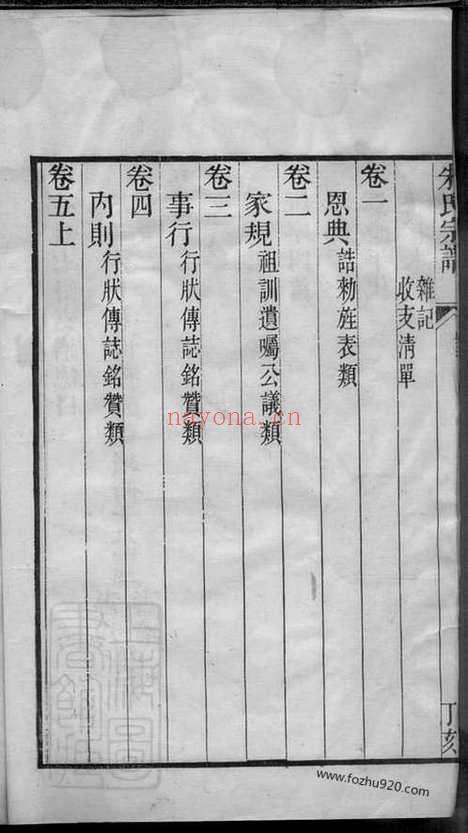 氏宗譜
丁刻
雜記
收支清單
卷一
恩典 誥勅旌表類
卷二
家規 祖訓遺囑公議類
卷三
事行 行狀傳誌銘贊類
卷四
內則 行狀傳誌銘贊類
卷五上
nayona.cn
www.fozhu920.com